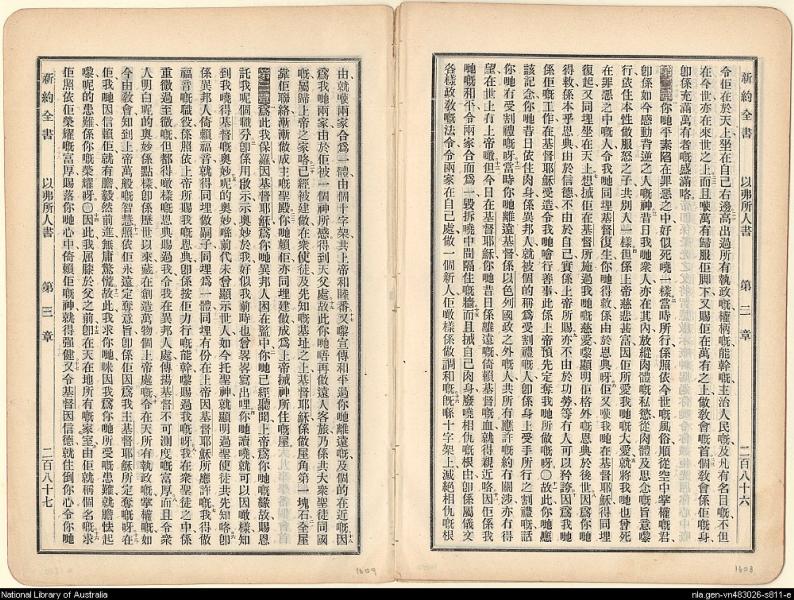 新約全書 以弗所人書 第二章 二百八十六
令佢在於天上坐在自己右邊高出過所有執政嘅權柄嘅能幹嘅主治人民嘅及凡有名目嘅不但
在今世亦在來世之上而且噲萬有歸服佢脚下又賜佢在萬有之上做敎會嘅首個敎會係佢嘅身
卽係充滿萬有者嘅盛滿咯
第二章你哋平素陷在罪惡之中好似死嘵一樣當時所行係照依今世嘅風俗順從空中掌權嘅君
卽係如今感動背逆之人嘅神昔日我哋衆人亦在其內放縱肉體嘅私慾從肉體及思念嘅旨意嚟
行依住本性做服怒之子共別人一樣但係上帝慈悲甚富因佢所愛我哋嘅大愛就將我哋也曾死
在罪惡之中嘅人令我哋同埋基督復生你哋得救係由於恩典呀佢又噲我哋在基督耶穌得同埋
復起又同埋坐在天上想㧜佢在基督所施過我哋嘅慈愛嚟顯明佢格外嘅恩典於後世因爲你哋
得救係本乎恩典由於信德不由於自己實係上帝所賜亦不由於功勞等冇人可以矜誇因爲我哋
係佢嘅工作在基督耶穌受造令我哋會行善事此係上帝預先定奪我哋所做嘅呀〇故此你哋應
該記念你哋昔日依住肉身係異邦人就被個的稱爲受割禮嘅人卽係身上受手所行之割禮嘅話
你哋冇受割禮嘅呀當時你哋離遠基督係以色列國政之外嘅人共所有應許嘅約冇關涉亦冇得
望在世上冇上帝嘅但今日在基督耶穌你哋昔日係離遠嘅倚賴基督嘅血就得親近咯因佢係我
哋嘅和平令兩家合而爲一毀拆嘵中間隔住嘅牆而且㧜自己肉身廢嘵相仇嘅根由卽係屬儀文
各樣政敎嘅法令令兩家在自己處做一個新人佢噉樣係做調和嘅旣喺十字架上滅絕相仇嘅根
1608
由就噲兩家合爲一體由個十字架共上帝和睦番又嚟宣傳和平過你哋離遠嘅及個的在近嘅因
爲我哋兩家由於佢被一個神所感得到天父處故此你哋唔再做遠人客旅乃係共大衆聖徒同國
嘅屬歸上帝之家咯已經被建做在衆使徒及先知嘅基址之上基督耶穌係做屋角第一塊石全屋
靠佢聯絡漸漸做成主嘅聖殿你哋賴佢亦同埋建做成爲上帝㧜神所住嘅屋
第三章爲此我保羅因基督耶穌爲你哋異邦人困在監中你哋已經聽聞上帝爲你哋嘅緣故賜恩
託我呢個職分卽係用啟示示奧妙於我好似我前時也曾畧畧寫出嚟你哋讀嘵就可以因噉樣知
到我曉得基督嘅奧妙呢的奧妙喺前代未曾顯示世人如今托聖神就顯明過聖使徒共先知咯卽
係異邦人倚賴福音就得同埋做嗣子同埋爲一體同埋有份在上帝因基督耶穌所應許嘅我得做
福音嘅職役係照依上帝所賜我嘅恩典卽係按佢力行嘅能幹嚟賜過我嘅呀我在衆聖徒之中係
重微過至微嘅但都得噉樣嘅恩典賜過我令我在異邦人處傳揚基督不可測度嘅富厚而且令衆
人明白呢的奧妙係點樣卽係歷世以來藏在創造萬物個上帝處嘅令在天所有執政嘅掌權嘅如
今由敎會知到上帝萬般嘅智慧照依佢永遠定奪意旨卽係佢因爲我主基督耶穌所定奪嘅呀在
佢我哋因信賴佢就有膽毅然前進無庸驚慌故此我求你哋咪因我爲你哋所受嘅患難就膽怯起
嚟呢的患難係你哋嘅榮耀呀〇因此我屈膝於父之前卽在天在地所有嘅家室由佢就稱個名嘅求
佢照依佢榮耀嘅富厚賜落你哋心中倚賴佢嘅神就得强健又令基督因信德就住倒你心令你哋
新約全書 以弗所人書 第三章 二百八十七
1609
National Library of Australia
nla.gen-vn483026-s811-e